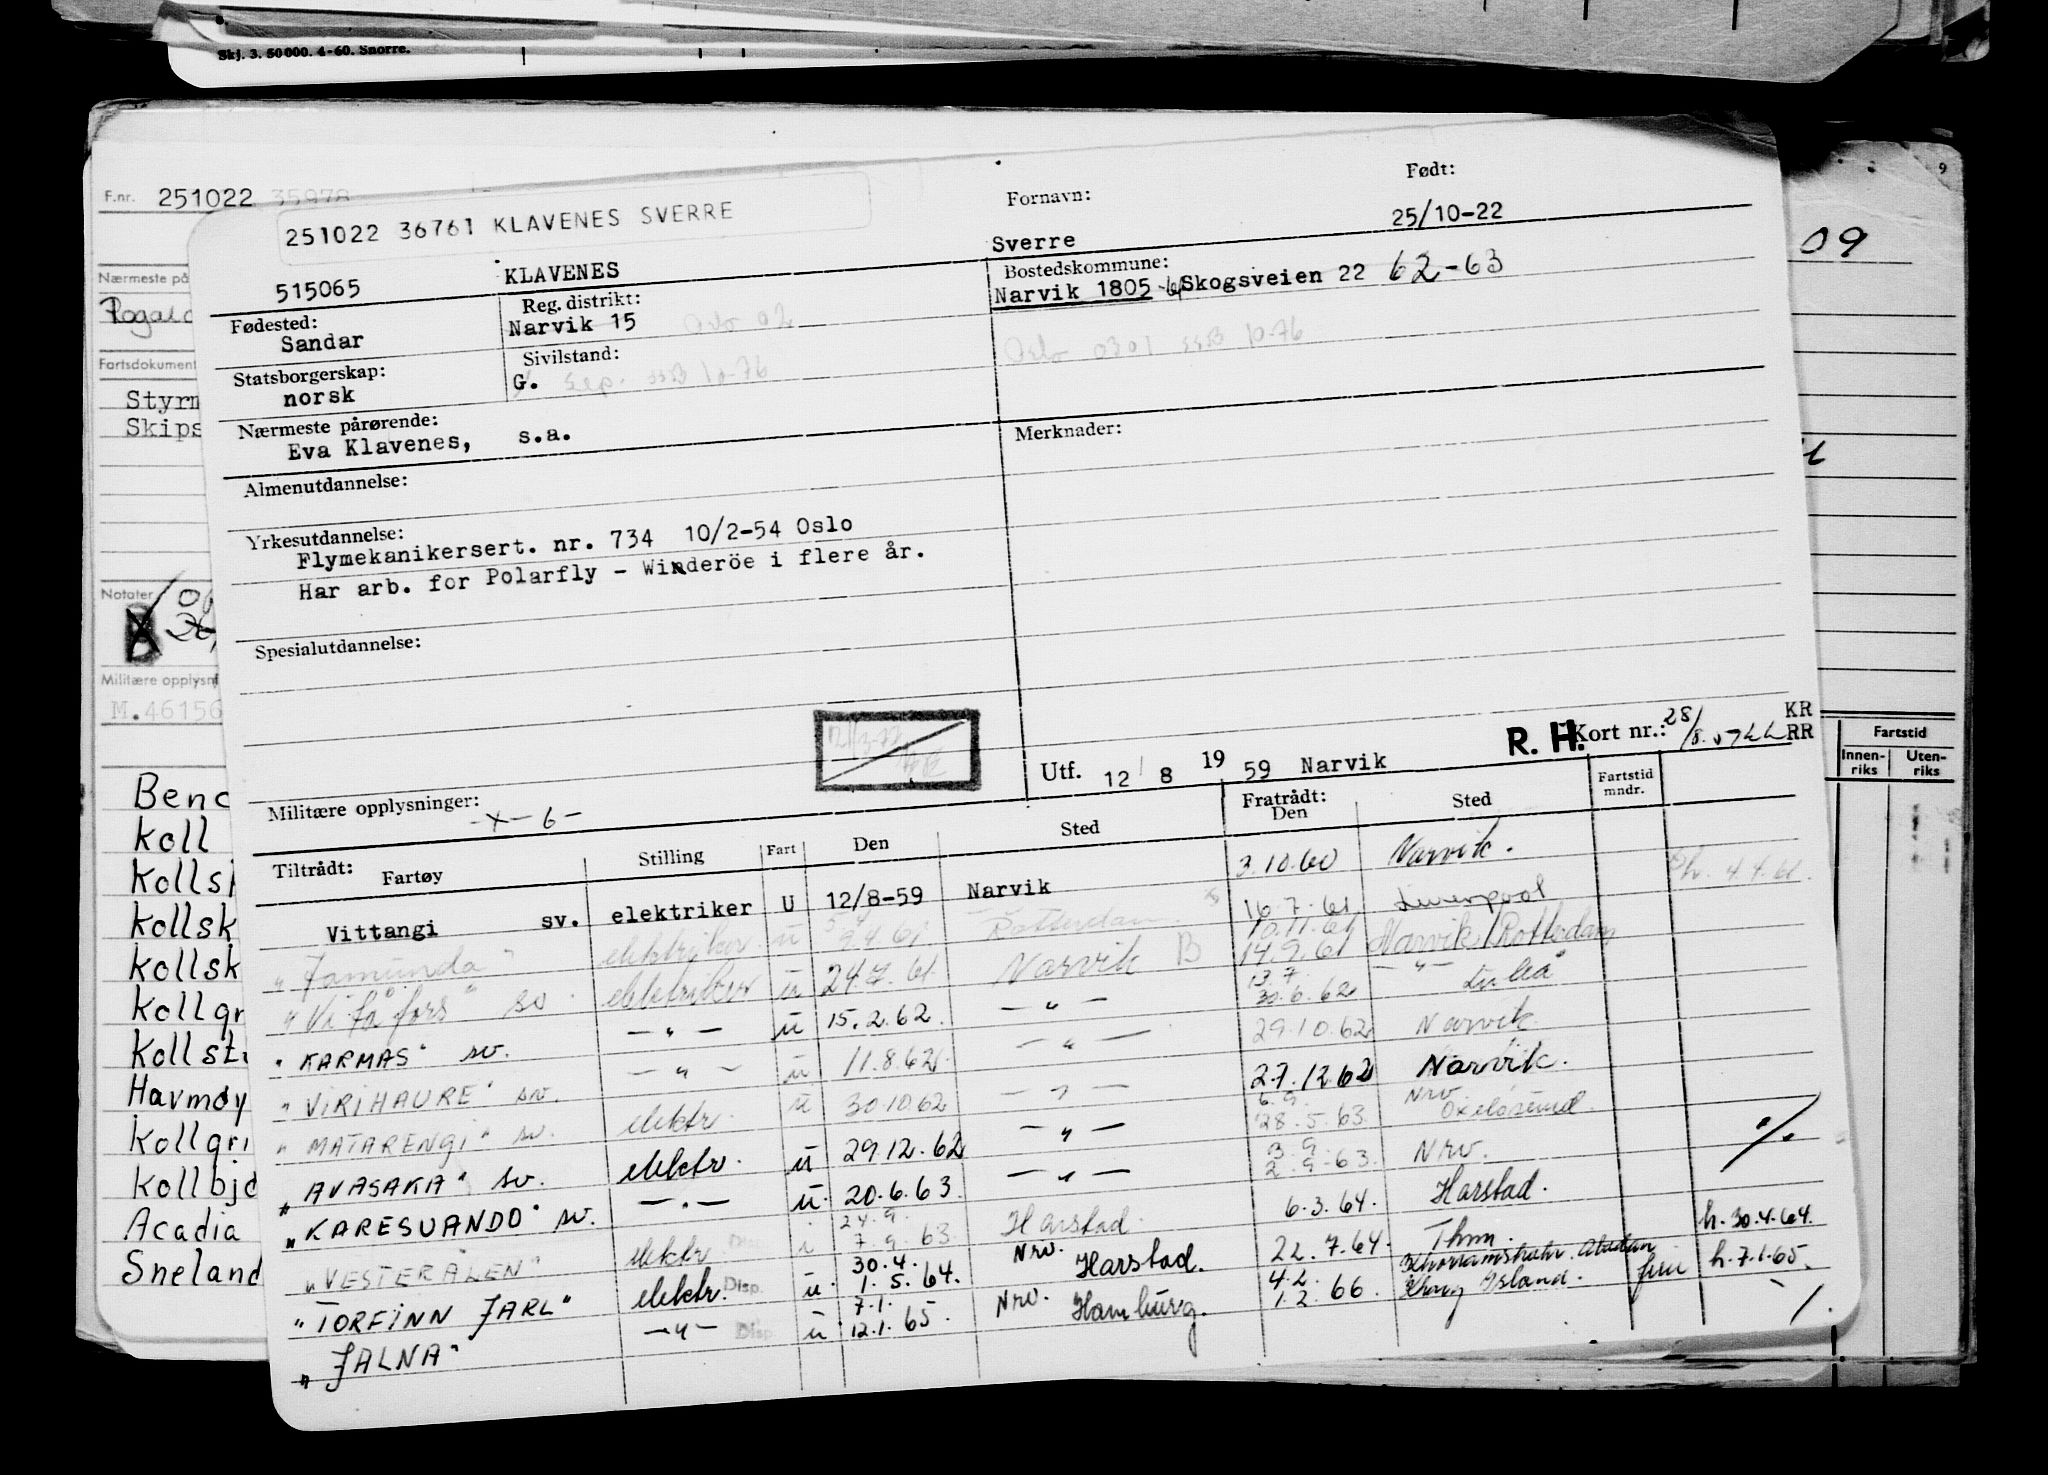 Skj. 3. 50 000. 4-60. Snorre.
9
F.nr. 251022 35978
09
Nærmeste på
Rogala
Fartsdokument
Styrm
Skips
Notater
Militære opplysni
M.46156
Fartstid
Innen-riks Uten-riks
Benc
Koll
Kollsk
Kollsk
Kollgr
Kollst
Havmøy
Kollgri
Kollbjø
Acadia
Sneland
251022 36761 KLAVENES SVERRE
Fornavn: Født:
515065 KLAVENES Sverre 25/10-22
Fødested: Reg. distrikt: Bostedskommune:
Sandar Narvik 15 Oslo 02 Narvik 1805 Skogsveien 22 62-63
Statsborgerskap: Sivilstand: Oslo 0301 ssB 10-76
norsk G. Sep. ssB 10-76
Nærmeste pårørende: Merknader:
Eva Klavenes, s.a.
Almenutdannelse:
Yrkesutdannelse:
Flymekanikersert. nr. 734 10/2-54 Oslo
Har arb. for Polarfly - Winderöe i flere år.
Spesialutdannelse:
R. H. Kort nr.: 28/8. KR
RR
Utf. 12/8 1959 Narvik
Militære opplysninger: -x-6-
Tiltrådt: Fratrådt:
Fartøy Stilling Fart Den Sted Den Sted Fartstid mndr.
Vittangi sv. elektriker U 12/8-59 Narvik 3.10.60 Narvik.
"Tamunda" elektriker u 9.4.61 Rotterdam 16.7.61 Liverpool Ph. 4.4.61.
"Vitåfors" sv elektriker u 24.7.61 Narvik B 10.11.61 14.9.61 Narvik/Rotterdam
"KARMAS" sv. -"- u 15.2.62 -"- 13.7 30.6.62 -"- Luleå
"VIRIHAURE" sv. -"- u 11.8.62 -"- 29.10.62 Narvik
"MATARENGI" sv. elektr. u 30.10.62 -"- 27.12.62 Narvik.
"AVASAKA" sv. elektr. u 29.12.62 -"- 6.9. 28.5.63 Nrv Oxeløsund.
"KARESUANDO" sv. -"- u. 20.6.63. -"- 3.9 2.9.63. Nrv. %
"VESTERÅLEN" elektr. Disp. i 24.9. 7.9.63. Harstad. 6.3.64. Harstad.
"TORFINN JARL" elektr. Disp. u. 30.4. 1.5.64. Nrv. Harstad. 22.7.64. Thm. h. 30.4.64.
"JALNA" -"- Disp. u 7.1. 12.1.65. Nrv. Hamburg. 4.2. 1.2.66. Khorramshahr. Abadan Island. h. 7.1.65.